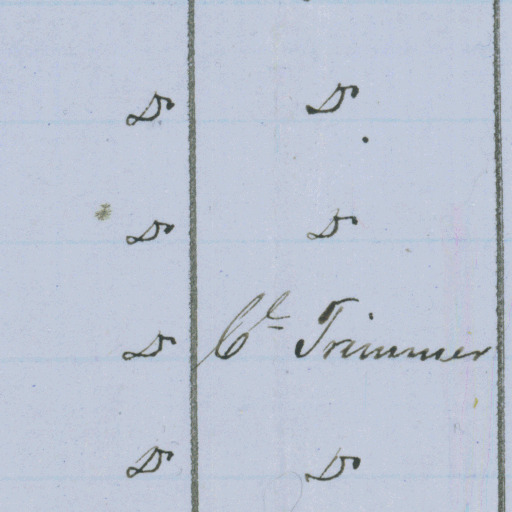 Do Do
Do Do
Do Cl Trimmer
Do Do